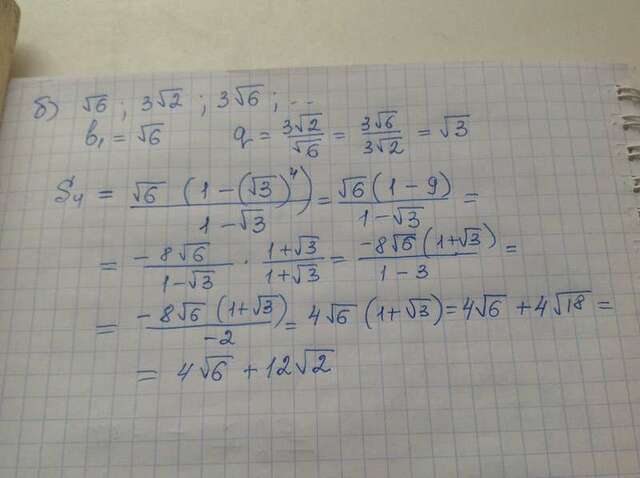 б) √6 ; 3√2 ; 3√6 ; ...
b₁ = √6 q = 3√2/√6 = 3√6/3√2 = √3
S₄ = √6 (1 - (√3)⁴)/(1 - √3) = √6 (1 - 9)/(1 - √3) =
= -8√6/(1 - √3) · (1 + √3)/(1 + √3) = -8√6 (1 + √3)/(1 - 3) =
= -8√6 (1 + √3)/-2 = 4√6 (1 + √3) = 4√6 + 4√18 =
= 4√6 + 12√2